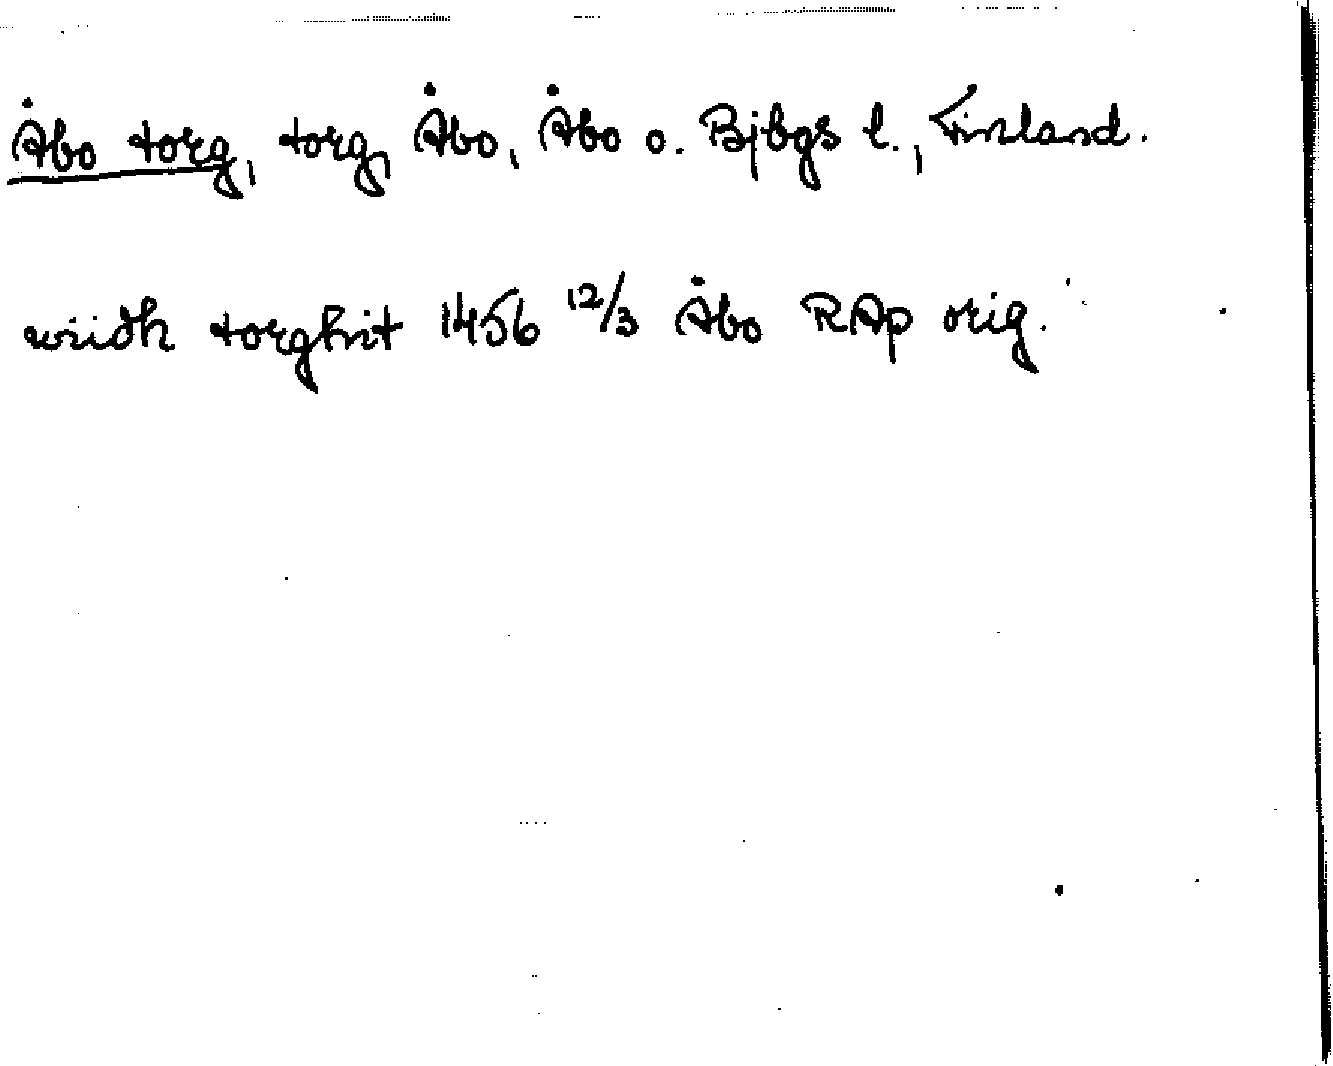 Åbo torg, torg, Åbo, Åbo o. Bjbgs l., Finland.
widh torghit 1456 12/3 Åbo RAp orig.